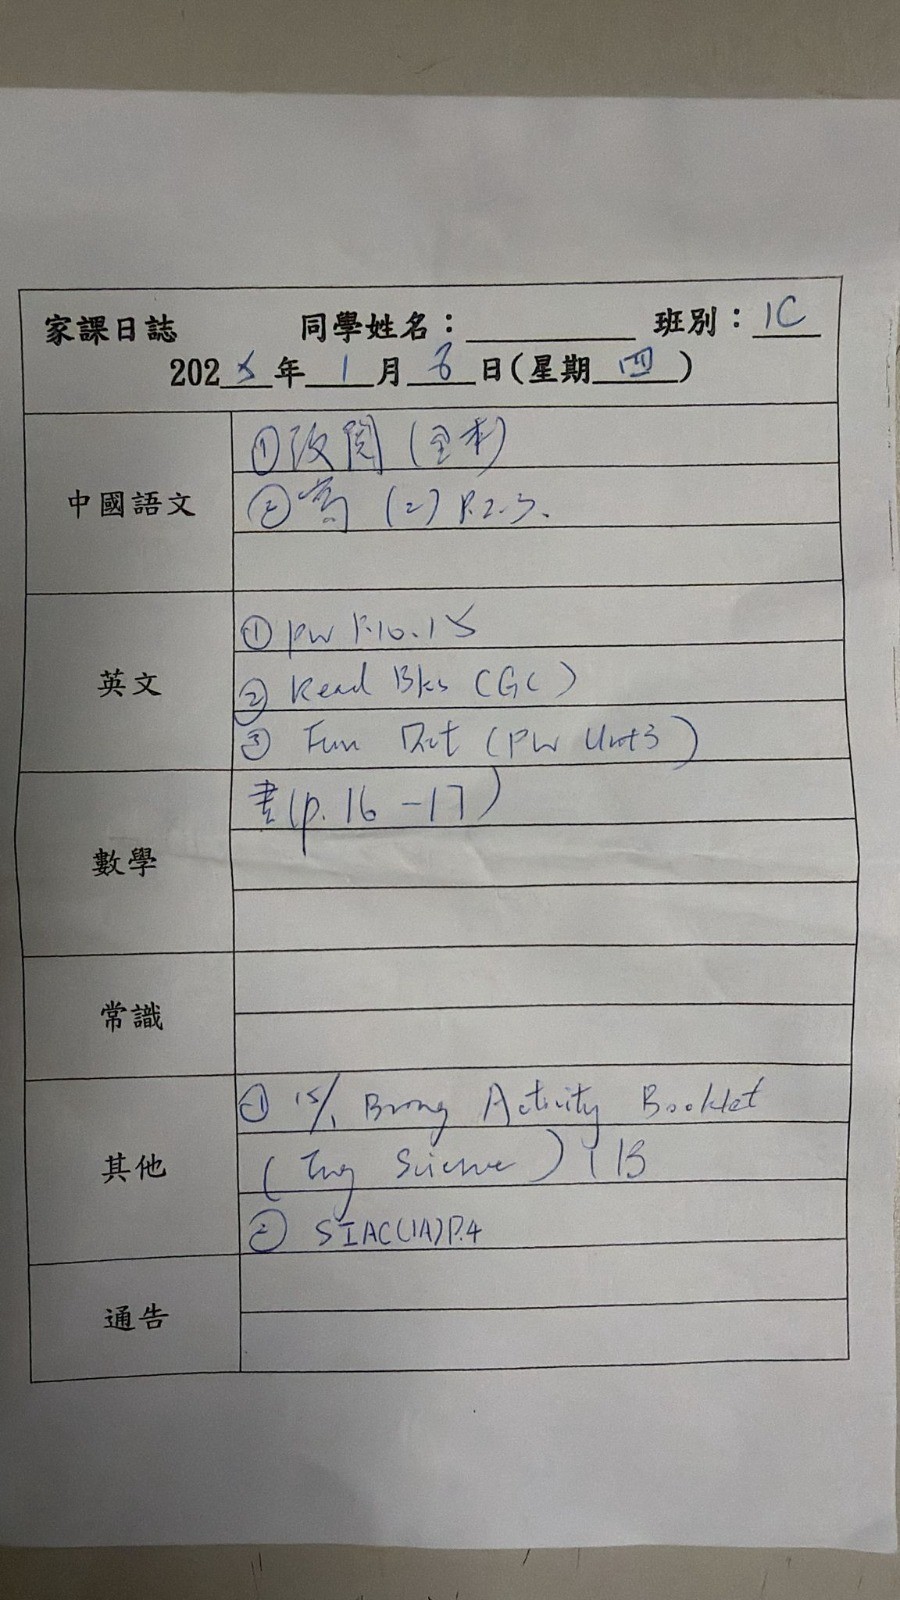 家課日誌 同學姓名：________ 班別：1C
202 年 1 月 日(星期 四)
中國語文
①改閱(全本)
② (二) P.2-3.
英文
① PW P.10.15
② Read Bks (GC)
③ Fun Dict (PW Unit3)
數學
書(p.16-17)
常識
其他
① 15/1 Bring Activity Booklet
(Eng Science) 1B
② SIAC(1A)P.4
通告